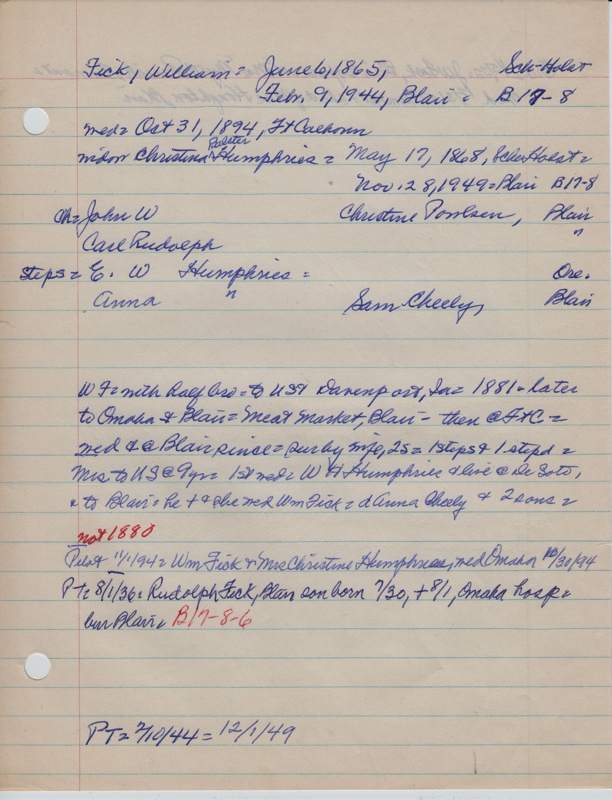 Fick, William = June 6, 1865, Sch-Holst
Febr. 9, 1944, Blair = B 17-8
med = Oct 31, 1894, Ft Calhoun
widow Christina Humphries = May 17, 1868, Schl Holst =
Nov. 28, 1949 = Blair B17-8
Ch = John W Christine Poulsen, Blair
Carl Rudolph "
steps = E. W Humphries = Ore.
Anna " Sam Cheely, Blair
W F = with half bro = to US & Davenport, Ia = 1881 = later
to Omaha & Blair = Meat Market, Blair - then @ Ft C =
med & @ Blair since = sur by wife, 2s = 1 steps & 1 stepd =
Mrs to US @ 9yr = 1st med = W H Humphries & live @ De Soto,
& to Blair = he + & she med Wm Fick = d Anna Cheely & 2 sons =
not 1880
Pilot 11/1/94 = Wm Fick & Mrs Christine Humphries, med Omaha 10/30/94
PT = 8/1/36 = Rudolph Fick, Blair son born 7/30, + 8/1, Omaha hosp =
bur Blair = B17-8-6
PT = 2/10/44 = 12/1/49